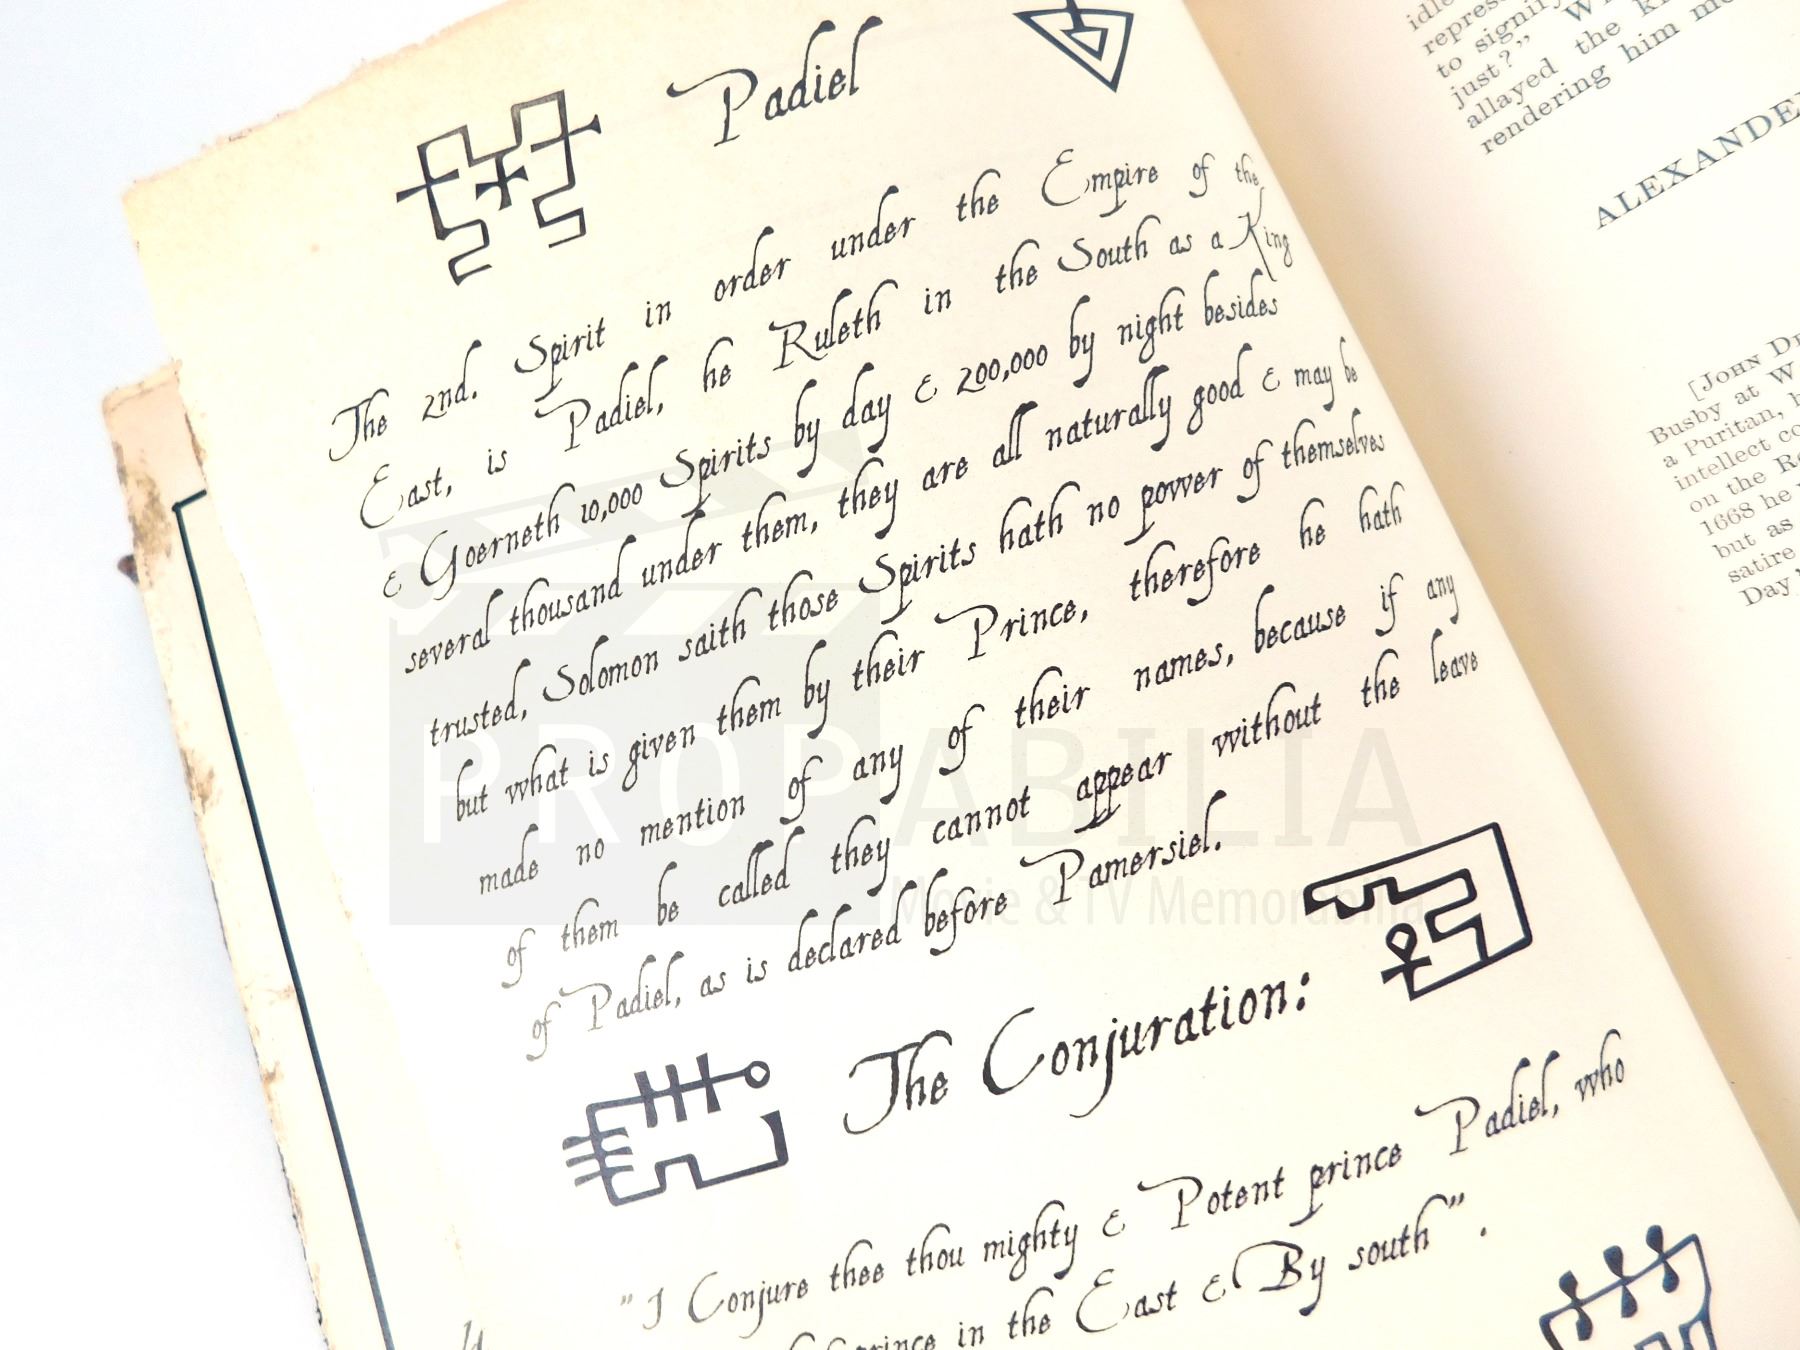 Padiel
The 2nd. Spirit in order under the Empire of the
East, is Padiel, he Ruleth in the South as a King
& Goerneth 10,000 Spirits by day & 200,000 by night besides
several thousand under them, they are all naturally good & may be
trusted, Solomon saith those Spirits hath no povver of themselves
but vvhat is given them by their Prince, therefore he hath
made no mention of any of their names, because if any
of them be called they cannot appear vvithout the leave
of Padiel, as is declared before Pamersiel.
The Conjuration:
"I Conjure thee thou mighty & Potent prince Padiel, vvho
prince in the East & By south".
PROPABILIA
Movie & TV Memorabilia
to signify
just?"
allayed the
rendering him
ALEXANDE
[JOHN
Busby at W
a Puritan,
intellect
on the
1668 he
but as
satire
Day